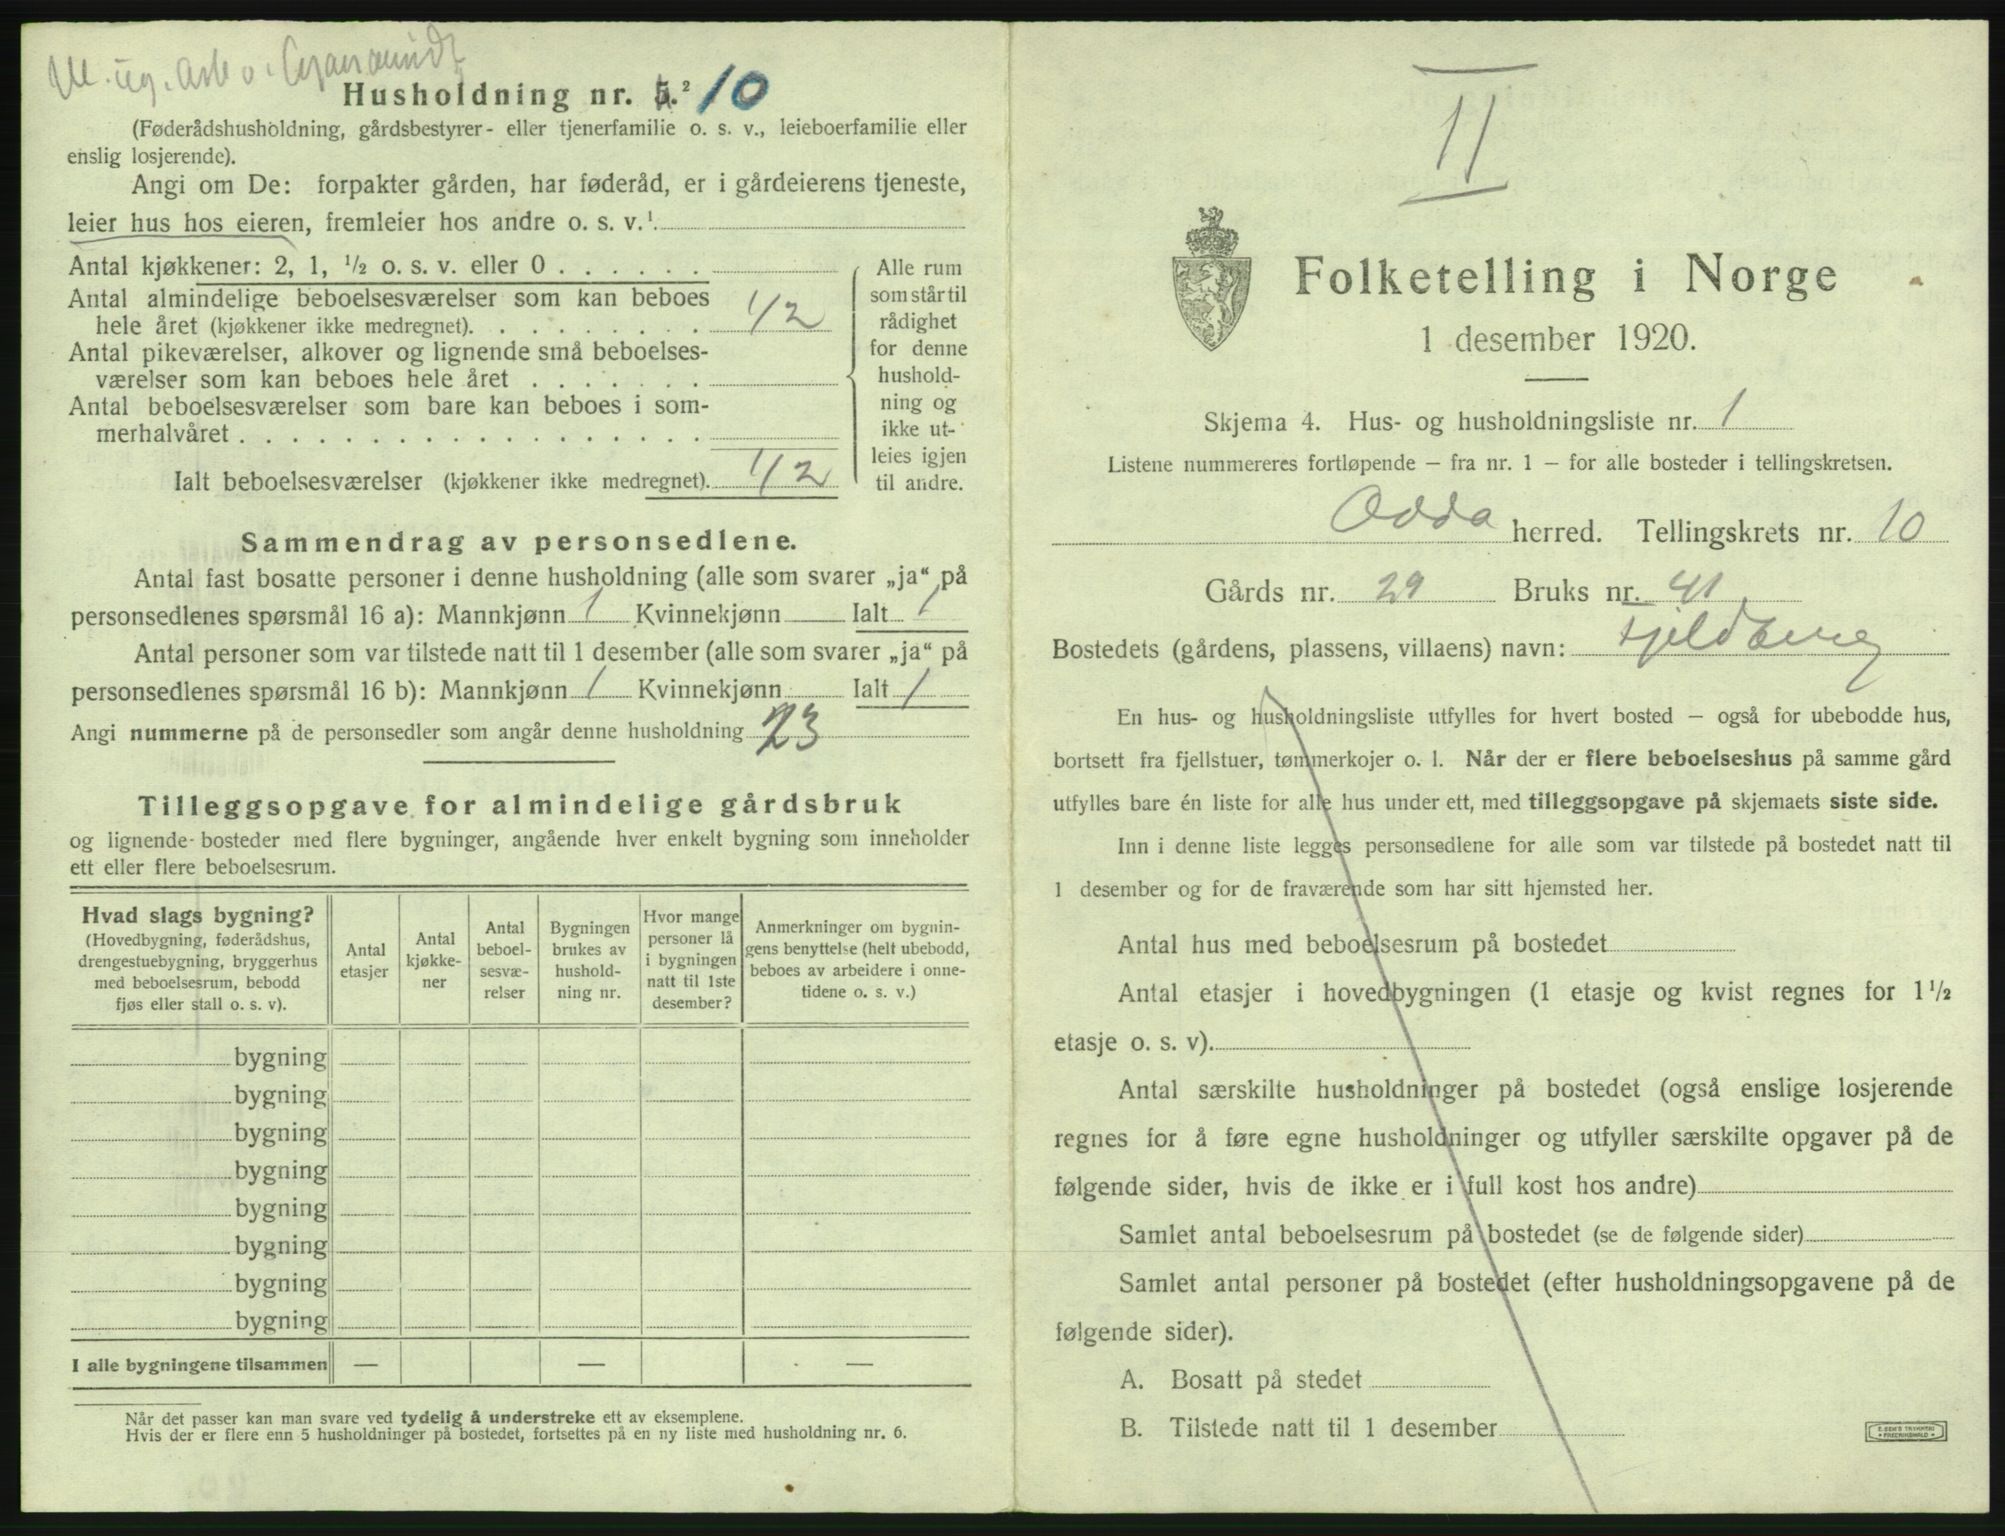 Husholdning nr. 5.² 10
(Føderådshusholdning, gårdsbestyrer- eller tjenerfamilie o. s. v., leieboerfamilie eller
enslig losjerende).
Angi om De: forpakter gården, har føderåd, er i gårdeierens tjeneste,
leier hus hos eieren, fremleier hos andre o. s. v.¹
Antal kjøkkener: 2, 1, ¹/₂ o. s. v. eller 0 . . . . . .
Antal almindelige beboelsesværelser som kan beboes
hele året (kjøkkener ikke medregnet). . . . . . . . . 1/2
Antal pikeværelser, alkover og lignende små beboelses-
værelser som kan beboes hele året . . . . . . .
Antal beboelsesværelser som bare kan beboes i som-
merhalvåret . . . . . . . . . . . . . . . . . .
Ialt beboelsesværelser (kjøkkener ikke medregnet). 1/2
Alle rum
som står til
rådighet
for denne
hushold-
ning og
ikke ut-
leies igjen
til andre.
Sammendrag av personsedlene.
Antal fast bosatte personer i denne husholdning (alle som svarer „ja“ på
personsedlenes spørsmål 16 a): Mannkjønn 1 Kvinnekjønn Ialt 1
Antal personer som var tilstede natt til 1 desember (alle som svarer „ja“ på
personsedlenes spørsmål 16 b): Mannkjønn 1 Kvinnekjønn Ialt 1
Angi nummerne på de personsedler som angår denne husholdning 23
Tilleggsopgave for almindelige gårdsbruk
og lignende bosteder med flere bygninger, angående hver enkelt bygning som inneholder
ett eller flere beboelsesrum.
Hvad slags bygning?
(Hovedbygning, føderådshus,
drengestuebygning, bryggerhus
med beboelsesrum, bebodd
fjøs eller stall o. s. v).
Antal
etasjer
Antal
kjøkke-
ner
Antal
beboel-
sesvæ-
relser
Bygningen
brukes av
hushold-
ning nr.
Hvor mange
personer lå
i bygningen
natt til 1ste
desember?
Anmerkninger om bygnin-
gens benyttelse (helt ubebodd,
beboes av arbeidere i onne-
tidene o. s. v.)
bygning
bygning
bygning
bygning
bygning
bygning
bygning
bygning
I alle bygningene tilsammen — — —
Når det passer kan man svare ved tydelig å understreke ett av eksemplene.
Hvis der er flere enn 5 husholdninger på bostedet, fortsettes på en ny liste med husholdning nr. 6.
II
Folketelling i Norge
1 desember 1920.
Skjema 4. Hus- og husholdningsliste nr. 1
Listene nummereres fortløpende – fra nr. 1 – for alle bosteder i tellingskretsen.
Odda herred. Tellingskrets nr. 10
Gårds nr. 29 Bruks nr. 41
Bostedets (gårdens, plassens, villaens) navn: Fjeldberg
En hus- og husholdningsliste utfylles for hvert bosted – også for ubebodde hus,
bortsett fra fjellstuer, tømmerkojer o. l. Når der er flere beboelseshus på samme gård
utfylles bare én liste for alle hus under ett, med tilleggsopgave på skjemaets siste side.
Inn i denne liste legges personsedlene for alle som var tilstede på bostedet natt til
1 desember og for de fraværende som har sitt hjemsted her.
Antal hus med beboelsesrum på bostedet
Antal etasjer i hovedbygningen (1 etasje og kvist regnes for 1¹/₂
etasje o. s. v).
Antal særskilte husholdninger på bostedet (også enslige losjerende
regnes for å føre egne husholdninger og utfyller særskilte opgaver på de
følgende sider, hvis de ikke er i full kost hos andre)
Samlet antal beboelsesrum på bostedet (se de følgende sider)
Samlet antal personer på bostedet (efter husholdningsopgavene på de
følgende sider).
A. Bosatt på stedet
B. Tilstede natt til 1 desember